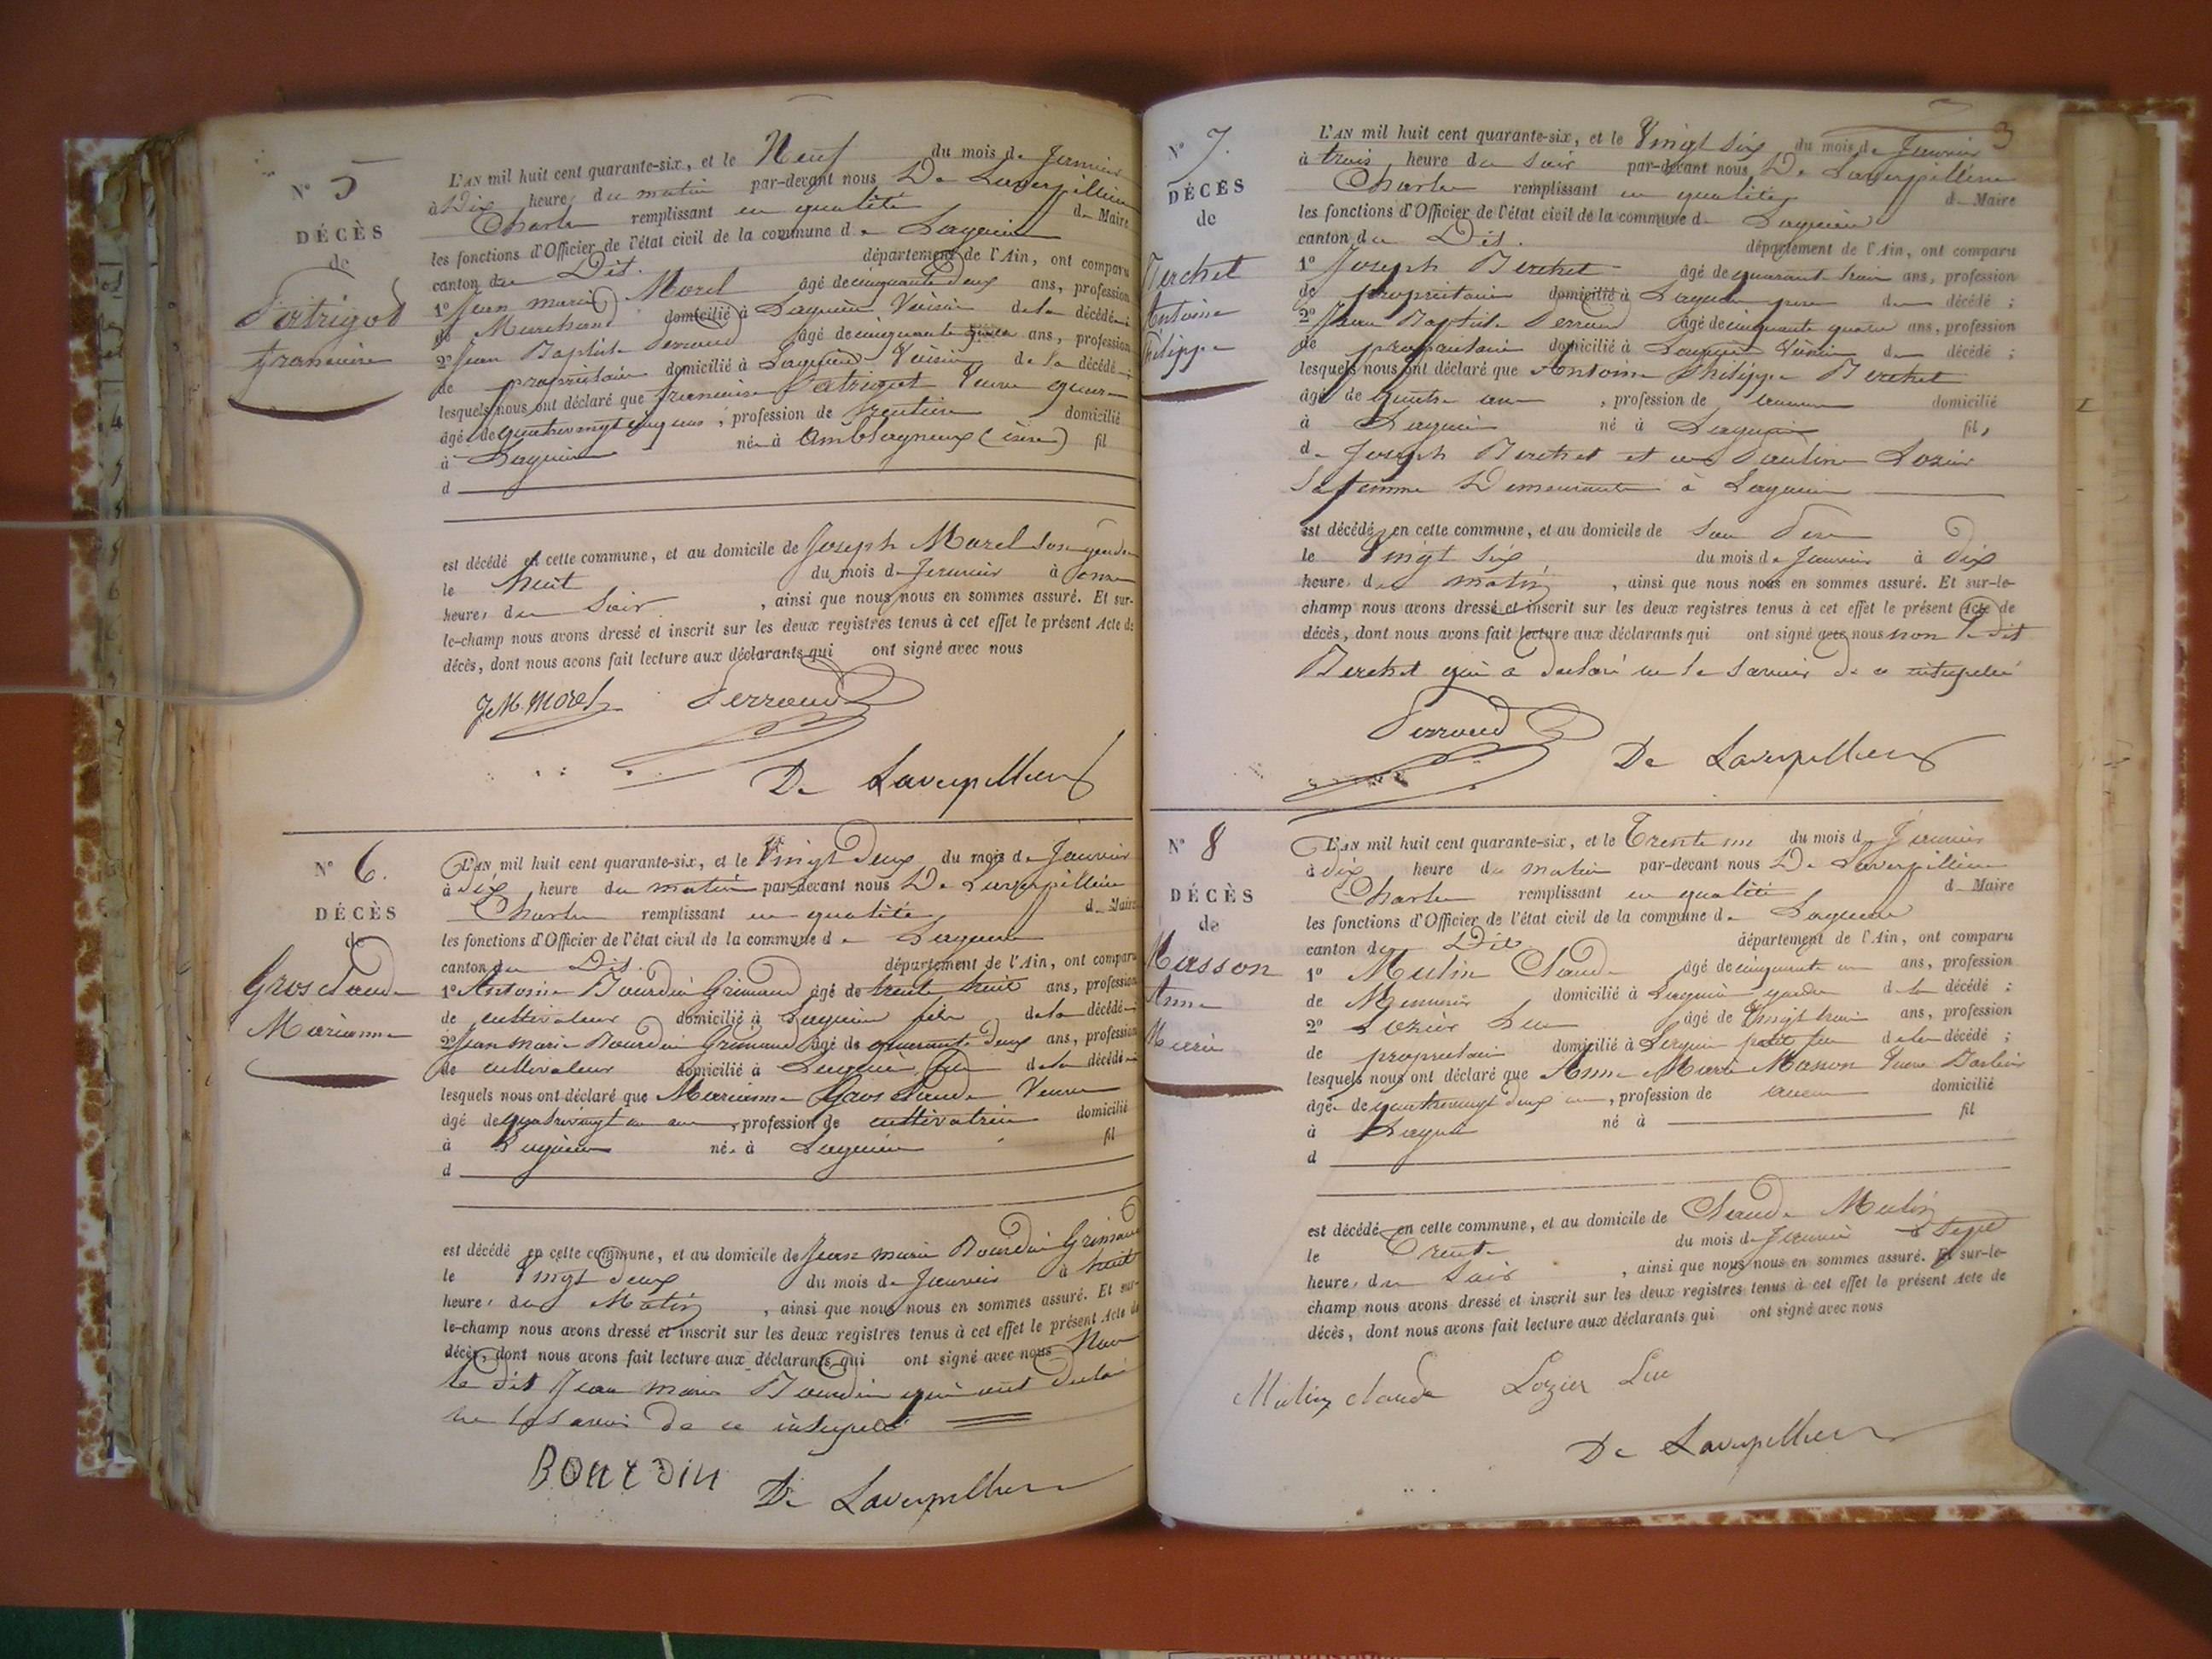 N° 5
DÉCÈS
de
Patrigot
francoise
L'AN mil huit cent quarante-six, et le Neuf du mois de Janvier
à Dix heure du matin par-devant nous De Laverpillière
Charles remplissant en qualité de Maire
les fonctions d'Officier de l'état civil de la commune de Lagnieu
canton du Dit. département de l'Ain, ont comparu
1° Jean marie Morel âgé de cinquante Deux ans, profession
de Marchand domicilié à Lagnieu Voisin de la décédée
2° Jean Baptiste Perroud âgé de cinquante ans, profession
de propriétaire domicilié à Lagnieu Voisin de la décédée
lesquels nous ont déclaré que francoise Patrigot Veuve
âgé de quatrevingt cinq ans, profession de rentiere domicilié
à Lagnieu née à Amblagneux (isere) fil
d
est décédé en cette commune, et au domicile de Joseph Morel son gendre
le huit du mois de Janvier à onze
heures du Soir, ainsi que nous nous en sommes assuré. Et sur-
le-champ nous avons dressé et inscrit sur les deux registres tenus à cet effet le présent Acte de
décès, dont nous avons fait lecture aux déclarants qui ont signé avec nous
J M Morel Perroud
De Laverpilliere
N° 6.
DÉCÈS
de
Gros Claude
Marianne
L'AN mil huit cent quarante-six, et le Vingt Deux du mois de Janvier
à dix heure du matin par-devant nous De Laverpilliere
Charles remplissant en qualité de Maire
les fonctions d'Officier de l'état civil de la commune de Lagnieu
canton du Dit. département de l'Ain, ont comparu
1° Antoine Bourdin Grimaud âgé de trente huit ans, profession
de cultivateur domicilié à Lagnieu fils de la décédée
2° Jean Marie Bourdin Grimaud âgé de quarante Deux ans, profession
de cultivateur domicilié à Lagnieu fils de la décédée
lesquels nous ont déclaré que Marianne Gros Claude Veuve
âgé de quatrevingt un ans, profession de cultivatrice domicilié
à Lagnieu née à Lagnieu fil
d
est décédé en cette commune, et au domicile de Jean marie Bourdin Grimaud
le Vingt Deux du mois de Janvier à huit
heures du Matin, ainsi que nous nous en sommes assuré. Et sur-
le-champ nous avons dressé et inscrit sur les deux registres tenus à cet effet le présent Acte de
décès, dont nous avons fait lecture aux déclarants qui ont signé avec nous Non
le dit Jean Marie Bourdin qui a
ne le savoir de ce
BOURDIN De Laverpilliere
3
N° 7.
DÉCÈS
de
Berchet
Antoine
Philippe
L'AN mil huit cent quarante-six, et le Vingt six du mois de Janvier
à trois heure du soir par-devant nous De Laverpilliere
Charles remplissant en qualité de Maire
les fonctions d'Officier de l'état civil de la commune de Lagnieu
canton du Dit. département de l'Ain, ont comparu
1° Joseph Berchet âgé de quarante trois ans, profession
de propriétaire domicilié à Lagnieu pere du décédé ;
2° Jean Baptiste Perroud âgé de cinquante quatre ans, profession
de propriétaire domicilié à Lagnieu Voisin du décédé ;
lesquels nous ont déclaré que Antoine Philippe Berchet
âgé de quatre ans, profession de aucune domicilié
à Lagnieu né à Lagnieu fils
de Joseph Berchet et de Pauline Lozier
Sa femme Demeurante à Lagnieu
est décédé en cette commune, et au domicile de Son Pere
le Vingt Six du mois de Janvier à dix
heures du matin, ainsi que nous nous en sommes assuré. Et sur-le-
champ nous avons dressé et inscrit sur les deux registres tenus à cet effet le présent Acte de
décès, dont nous avons fait lecture aux déclarants qui ont signé avec nous non le dit
Berchet qui a déclaré ne le savoir de ce
Perroud De Laverpilliere
N° 8
DÉCÈS
de
Masson
Anne
Marie
L'AN mil huit cent quarante-six, et le Trente un du mois de Janvier
à dix heure du matin par-devant nous De Laverpilliere
Charles remplissant en qualité de Maire
les fonctions d'Officier de l'état civil de la commune de Lagnieu
canton du Dit département de l'Ain, ont comparu
1° Mulin Claude âgé de cinquante un ans, profession
de Menuisier domicilié à Lagnieu gendre de la décédé ;
2° Lozier Luc âgé de Vingt trois ans, profession
de propriétaire domicilié à Lagnieu petit fils de la décédé ;
lesquels nous ont déclaré que Anne Marie Masson Veuve
âgée de quatrevingt deux ans, profession de aucune domicilié
à Lagnieu né à fil
d
est décédé en cette commune, et au domicile de Claude Mulin
le Trente du mois de Janvier à Sept
heures du Soir, ainsi que nous nous en sommes assuré. Et sur-le-
champ nous avons dressé et inscrit sur les deux registres tenus à cet effet le présent Acte de
décès, dont nous avons fait lecture aux déclarants qui ont signé avec nous
Mulin claude Lozier Luc
De Laverpilliere